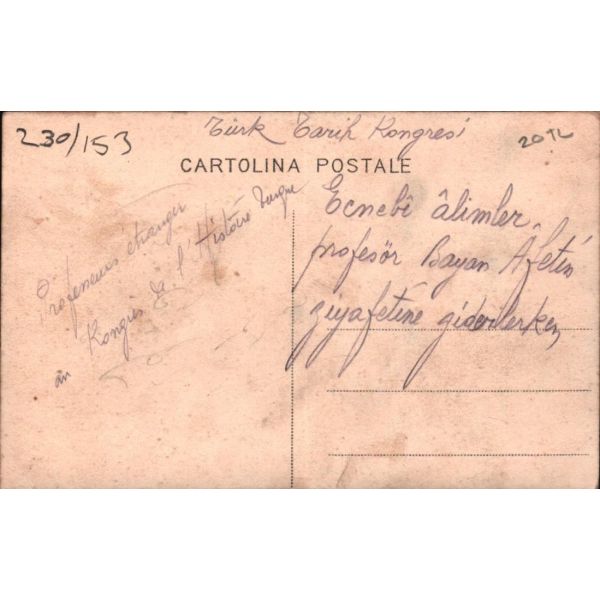 230/153
Türk Tarih Kongresi
20 TL
CARTOLINA POSTALE
Ecnebî âlimler,
profesör Bayan Âfetin
ziyafetine giderlerken,
Professeurs étranger
au Kongrès de l'Histoire turque